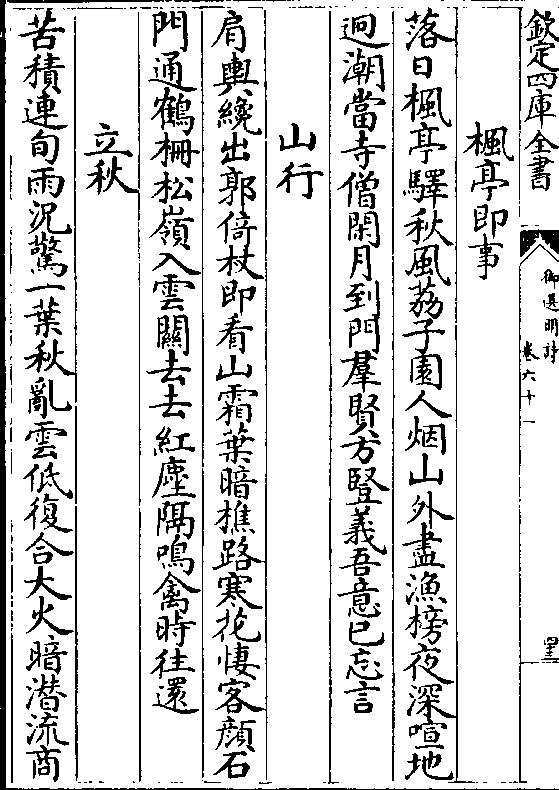 欽定四庫全書
御選明詩
卷六十一
四十三
楓亭即事
落日楓亭驛秋風荔子園人烟山外盡漁榜夜深喧地
迥潮當寺僧閑月到門羣賢方豎義吾意已忘言
山行
肩輿纔出郭倚杖即看山霜葉暗樵路寒花悽客顔石
門通鶴柵松嶺入雲關去去紅塵隔鳴禽時往還
立秋
苦積連旬雨況驚一葉秋亂雲低復合大火暗潛流商